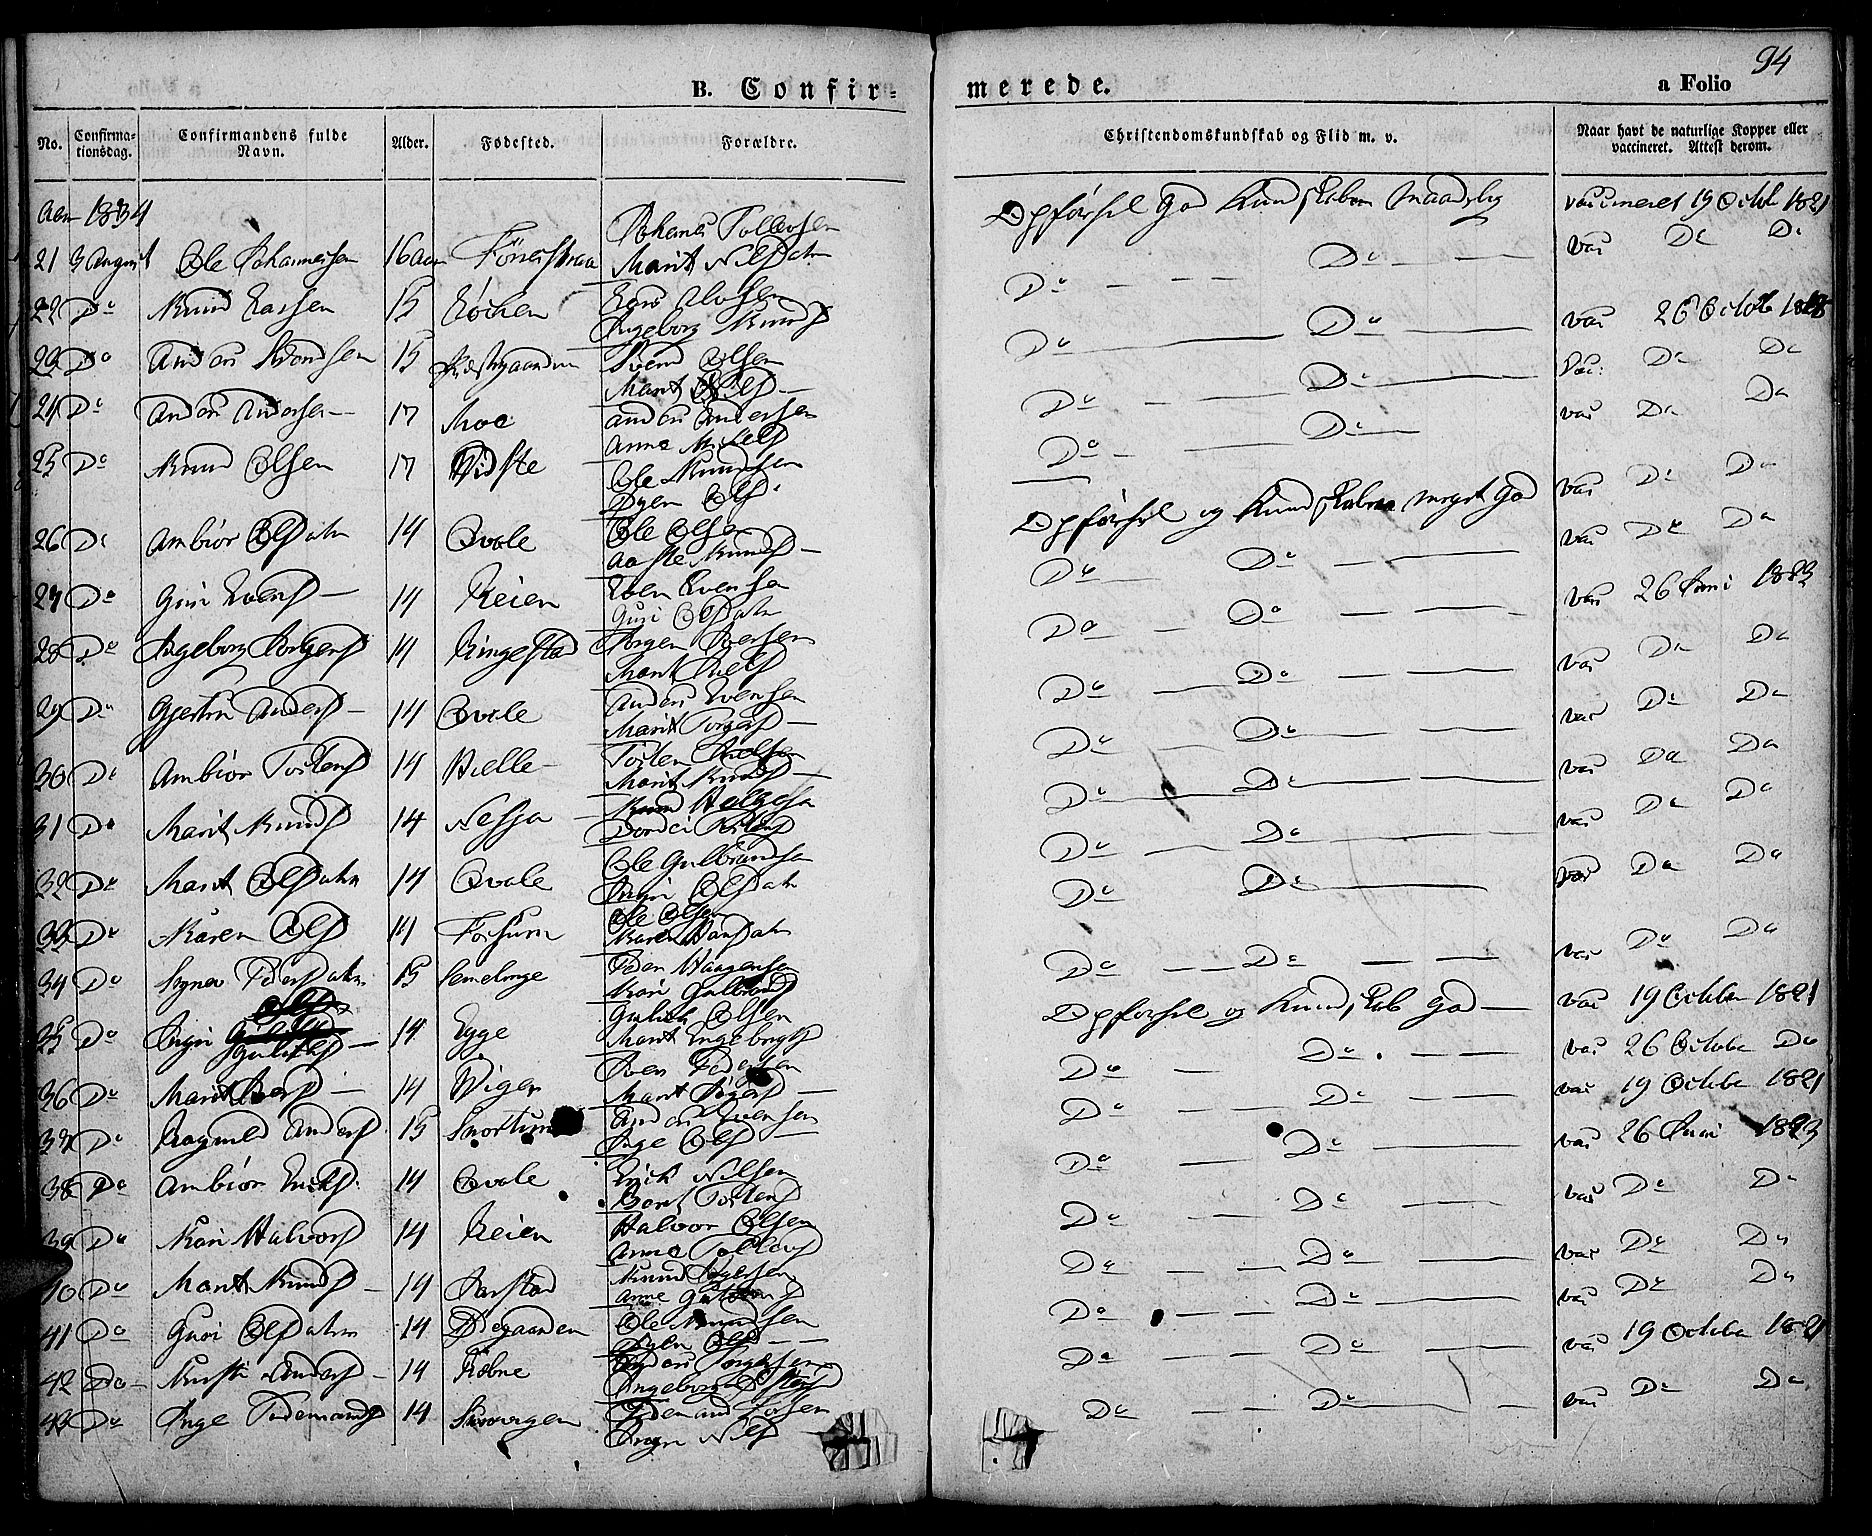 94
B. Confir-
merede.
a Folio
No.
Confirma-
tionsdag.
Confirmandens fulde
Navn.
Alder.
Fødested.
Forældre.
Christendomskundskab og Flid m. v.
Naar havt de naturlige Kopper eller
vaccineret. Attest derom.
Aar 1834
21 3 August Ole Johannessen 16 Aar Johanes Tollevsen
Marit Nilsdatr
Opførsel God Kundskaber Maadelig vaccineret 19 Octbr 1821
22 Do Knud Larsen 15 Løchen Lars Olvsen
Ingeborg Knuds
Do — — — Do — — — vac Do Do
23 Do Anders Svendsen 15 Præstgaarden Svend Olsen
Marit Ols
Do — Do — vac 26 October
24 Do Anders Andersen 17 Moe Anders Andersen
Anne Nils
Do — — Do — Vac: Do Do
25 Do Knud Olsen 17 Ole Knudsen
Dyen Ols
Do — — Do — vac Do Do
26 Do Ambiør Olsdatr 14 Qvale Ole Olsen
Aaste Knuds
Opførsel og Kundskaber meget God vac Do Do
27 Do Guri Evens 14 Reien Even Evensen
Guri Olsdatr
Do — Do — — vac Do Do
28 Do Ingeborg Jørgens 14 Ringestad Jørgen Iversen
Marit
Do — Do — — vac 26 Juni 1823
29 Do Gjertru Anders 14 Qvale Anders Evensen
Marit Torgers
Do — — Do — — vac Do Do
30 Do Ambiør Tostens 14 Helle Tosten
Marit Knuds
Do — — Do — — vac Do Do
31 Do Marit Knuds 14 Nesja Knud Helgesen
Dordei Tostens
Do — Do — — vac Do Do
32 Do Marit Olsdatr 14 Qvale Ole Gulbrandsen
Ingri Olsdatr
Do — — Do — vac Do Do
33 Do Karen Ols 14 Fossum Ole Olsen
Karen Hansdatr
Do Do — vac Do Do
34 Do Sygnev Pedersdatr 15 Semelenge Peder Haagensen
Kari Gulbrands
Do — — Do — — vac Do Do
35 Do Ingri Guliks 14 Egge Gulik Olsen
Marit Engebregts
Opførsel og Kundskab God — vac 19 October 1821
36 Do Marit Ivers 14 Wigen Iver Pedersen
Marit
Do — Do — — vac 26 October Do
37 Do Ragnild Anders 15 Snortum Anders Evensen
Inge Ols
Do — — Do — — vac 19 October 1821
38 Do Ambiør Eriks 14 Qvale Erick Nilsen
Berit Tostens
Do — — Do — — vac 26 Juni 1823
39 Do Kari Halvors 14 Reien Halvor Olsen
Anne Tollevs
Do — — Do — — vac Do Do
40 Do Marit Knuds 14 Jarstad Knud
Anne
Do — — Do — — vac Do Do
41 Do Guri Olsdatr 14 Ødegaarden Ole Knudsen
Dyen Ols
Do — — Do — — vac Do Do
42 Do Kirsti Anders 14 Anders Torgersen
Ingeborg
Do — — Do — — vac 19 October 1821
43 Do Inge Tidemands 14 Tidemand
Ingri Nils
Do — — Do — vac Do Do